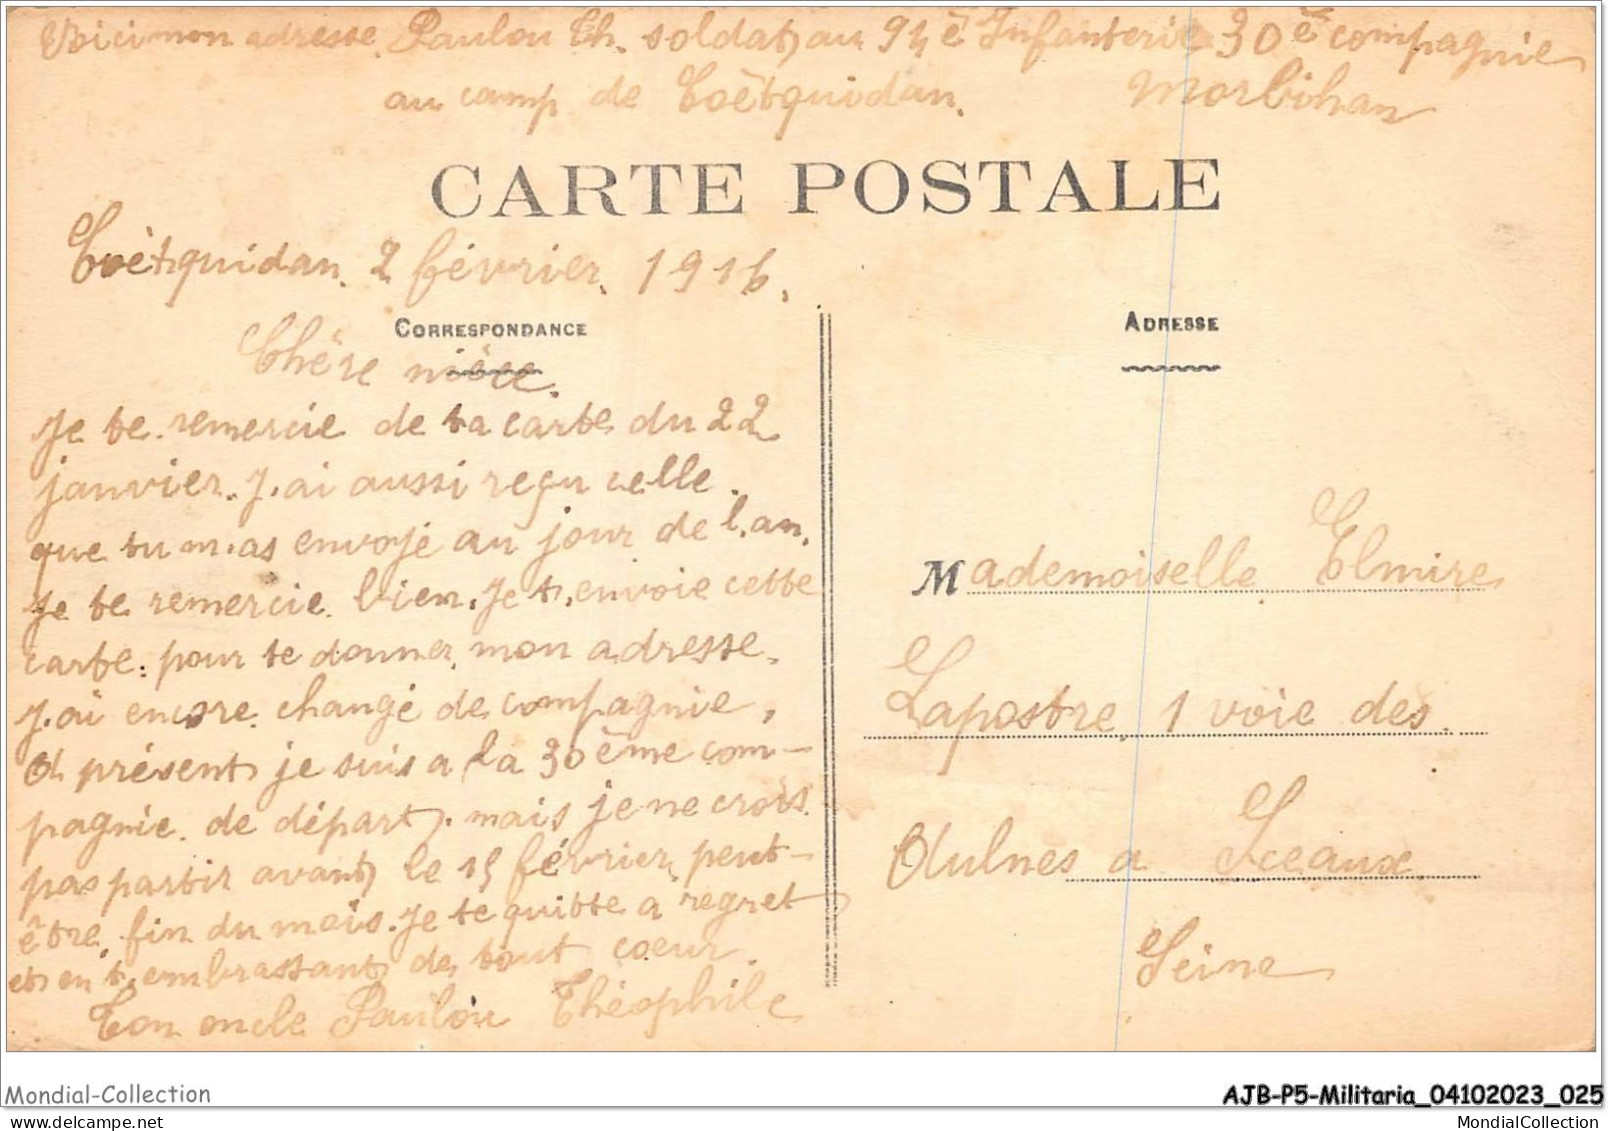 Voici mon adresse. Paulou Th. soldat au 94è Infanterie 30è compagnie
au camp de Coëtquidan. Morbihan
CARTE POSTALE
Coëtquidan. 2 février. 1916.
CORRESPONDANCE
ADRESSE
Chère nièce.
Je te remercie de ta carte du 22
janvier. J.ai aussi reçu celle
que tu m.as envoyé au jour de l.an.
Je te remercie bien. Je t.envoie cette
carte: pour te donner mon adresse.
J.ai encore changé de compagnie,
A présent je suis a la 30ème com-
pagnie de départ. mais je ne crois
pas partir avant le 15 février peut-
être fin du mois. Je te quitte a regret
et en t.embrassant de tout coeur.
Ton oncle Paulou Théophile
Mademoiselle Elmire
Lapostre 1 voie des
Aulnes a Sceaux
Seine
Mondial-Collection
AJB-P5-Militaria_04102023_025
www.mondial-collection.com
MondialCollection